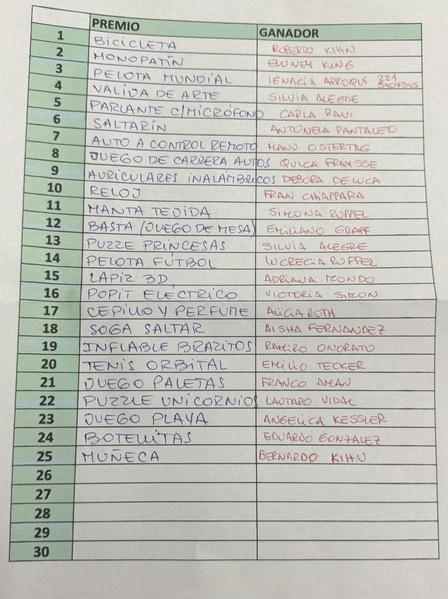 PREMIO GANADOR
1 BICICLETA ROBERTO KIHN
2 MONOPATÍN ELUNEY KING
3 PELOTA MUNDIAL IGNACIA ARROQUI 221
4 VALIJA DE ARTE SILVIA ALEGRE
5 PARLANTE C/MICRÓFONO CARLA PAVI
6 SALTARÍN ANTONELA PANTALEO
7 AUTO A CONTROL REMOTO MANU OSTERTAG
8 JUEGO DE CARRERA AUTOS QUICA FRAYSSE
9 AURICULARES INALÁMBRICOS DEBORA DE LUCA
10 RELOJ FRAN CHIAPPARA
11 MANTA TEJIDA SIMONA RUPPEL
12 BASTA (JUEGO DE MESA) EMILIANO GRAFF
13 PUZZLE PRINCESAS SILVIA ALEGRE
14 PELOTA FÚTBOL LUCRECIA RUPPEL
15 LAPIZ 3D ADRIANA
16 POPIT ELÉCTRICO VICTORIA SIMON
17 CEPILLO Y PERFUME ALICIA ROTH
18 SOGA SALTAR AISHA FERNANDEZ
19 INFLABLE BRAZITOS RAMIRO ONORATO
20 TENIS ORBITAL EMILIO TECKER
21 JUEGO PALETAS FRANCO AMAN
22 PUZZLE UNICORNIOS LAUTARO VIDAL
23 JUEGO PLAYA ANGELICA KESSLER
24 BOTELLITAS EDUARDO GONZALEZ
25 MUÑECA BERNARDO KIHN
26
27
28
29
30